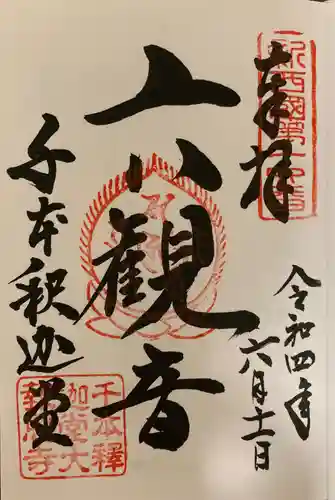 奉拝
令和四年
六月十一日
六観音
千本釈迦堂
新西國第十六番
千本釋
迦堂大
報恩寺